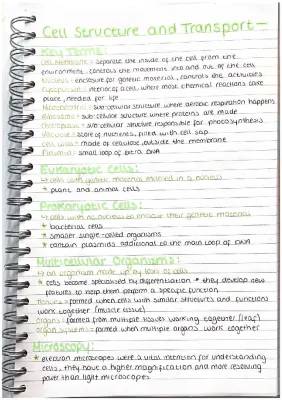 Cell Structure and Transport -
Key Terms:
Cell Membrane = separate the inside of the cell from the
environment, controls the movement into and out of the cell
Nucleus = encloses for genetic material, controls the activities
Cytoplasm = interior of a cell, where most chemical reactions take
place, needed for life
Mitochondria = sub-cellular structure where aerobic respiration happens
Ribosomes = sub-cellular structure where proteins are made
Chloroplasts = sub-cellular structure responsible for photosynthesis
Vacuole = store of nutrients, filled with cell sap
Cell walls = made of cellulose outside the membrane
Plasmid = small loop of extra DNA
Eukaryotic Cells:
cells with genetic material enclosed in a nucleus
* plant and animal cells
Prokaryotic Cells:
cells with no nucleus to enclose their genetic material
* bacterial cells
* smaller single-celled organisms
* contain plasmids additional to the main loop of DNA
Multicellular Organisms:
an organism made up by lots of cells
* cells become specialised by differentiation * they develop new
features to help them perform a specific function
Tissues = formed when cells with similar structures and functions
work together (muscle tissue)
Organs = formed from multiple tissues working together (leaf)
Organ systems = formed when multiple organs work together
Microscopy:
* electron microscopes were a vital invention for understanding
cells, they have a higher magnification and more resolving
power than light microscopes